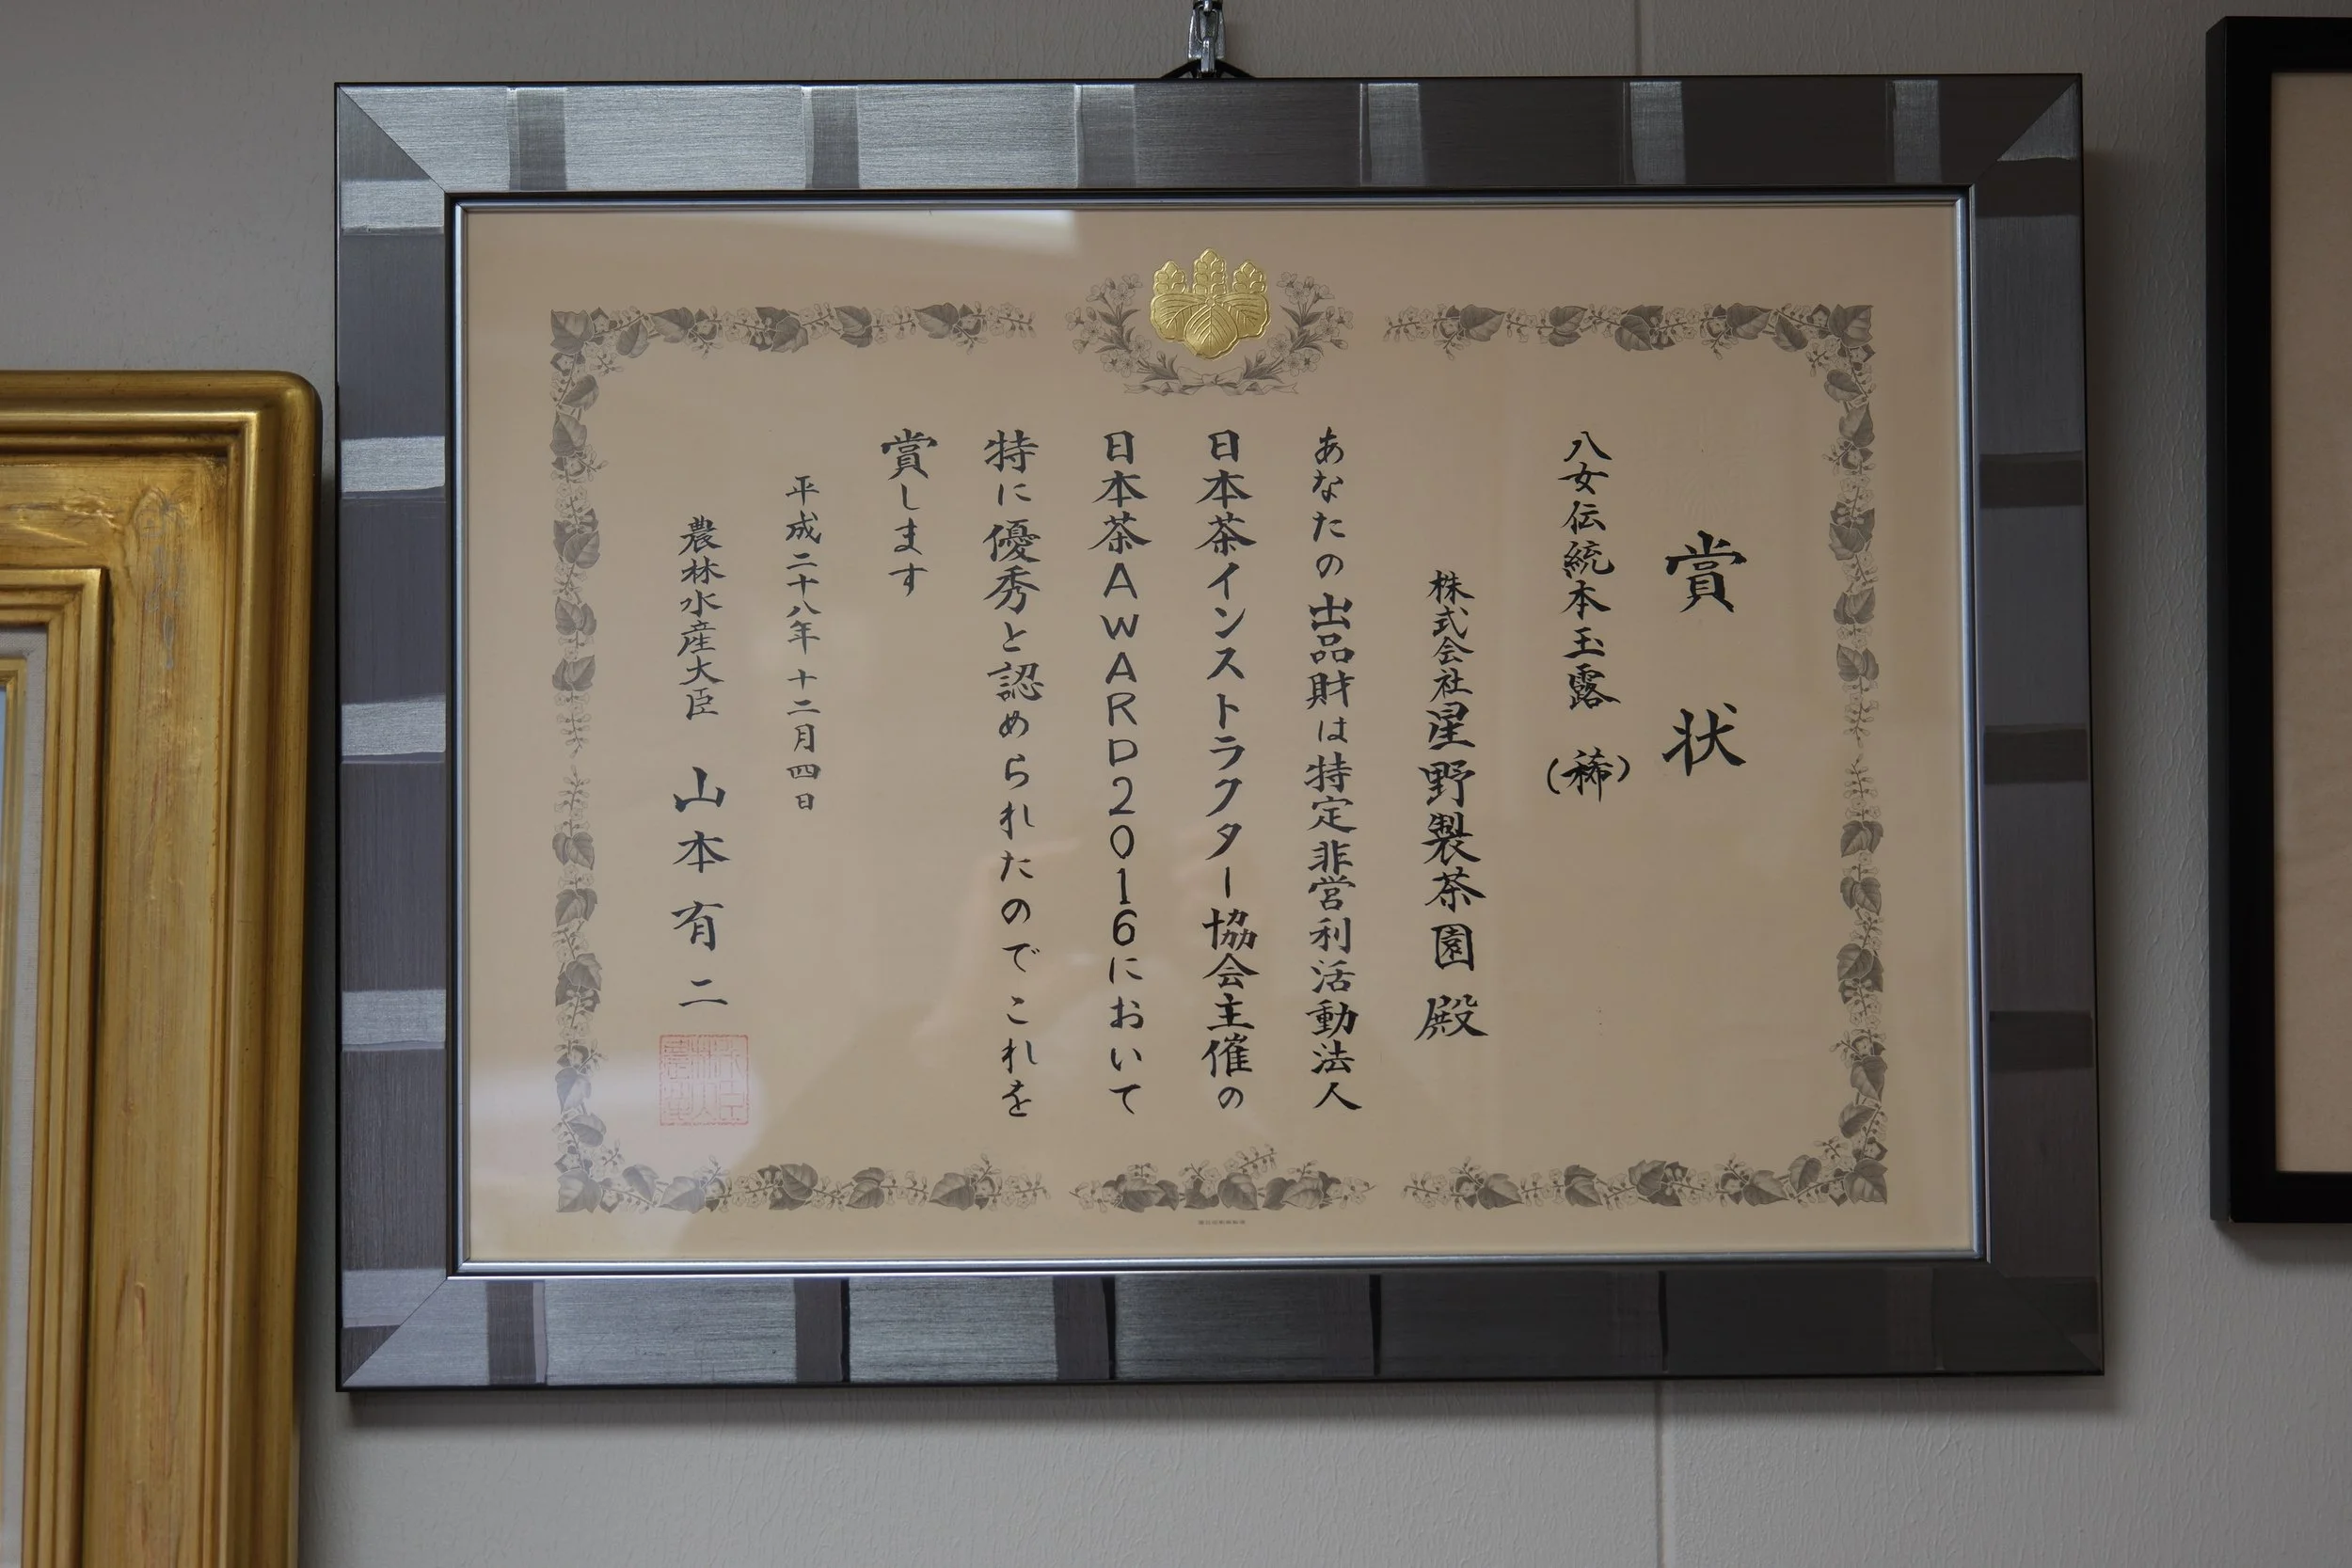 賞状
八女伝統本玉露 (稀)
株式会社星野製茶園 殿
あなたの出品財は特定非営利活動法人
日本茶インストラクター協会主催の
日本茶AWARD2016において
特に優秀と認められたのでこれを
賞します
平成二十八年十二月四日
農林水産大臣 山本有二